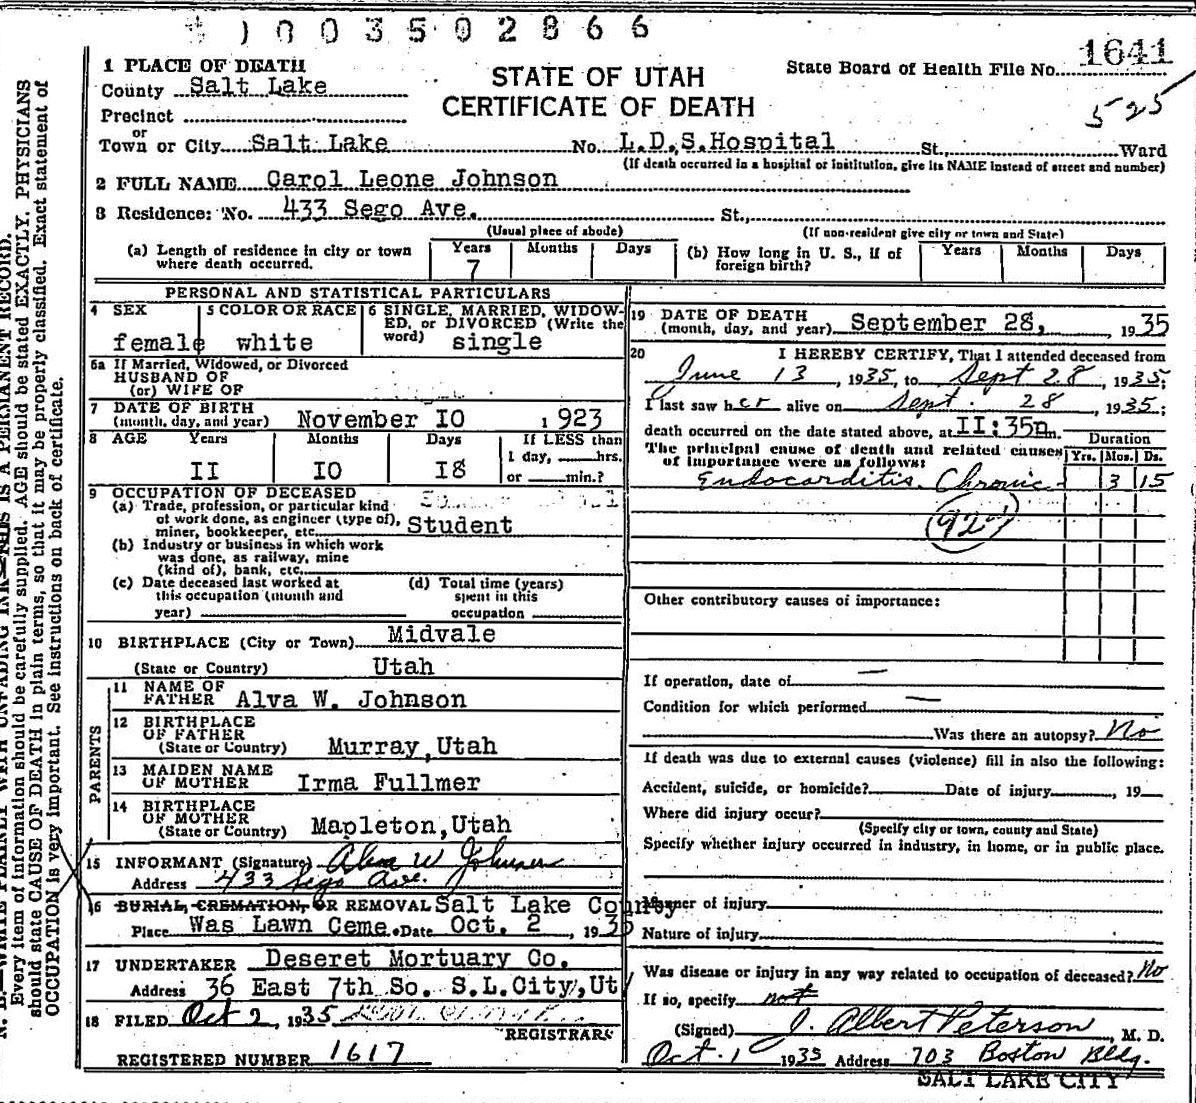 1003502866
1641
State Board of Health File No.
525
STATE OF UTAH
CERTIFICATE OF DEATH
1 PLACE OF DEATH
County Salt Lake
Precinct
or
Town or City Salt Lake No. L.D.S.Hospital St., Ward
(If death occurred in a hospital or institution, give its NAME instead of street and number)
2 FULL NAME Carol Leone Johnson
3 Residence: No. 433 Sego Ave. St.,
(Usual place of abode) (If non-resident give city or town and State)
(a) Length of residence in city or town where death occurred. Years 7 Months Days
(b) How long in U. S., if of foreign birth? Years Months Days
PERSONAL AND STATISTICAL PARTICULARS
4 SEX female
5 COLOR OR RACE white
6 SINGLE, MARRIED, WIDOWED, or DIVORCED (Write the word) single
6a If Married, Widowed, or Divorced
HUSBAND OF
(or) WIFE OF
7 DATE OF BIRTH
(month, day, and year) November IO 1923
8 AGE Years II Months IO Days I8
If LESS than
1 day, hrs.
or min.?
9 OCCUPATION OF DECEASED
(a) Trade, profession, or particular kind
of work done, as engineer (type of),
miner, bookkeeper, etc. Student
(b) Industry or business in which work
was done, as railway, mine
(kind of), bank, etc.
(c) Date deceased last worked at
this occupation (month and
year)
(d) Total time (years)
spent in this
occupation
10 BIRTHPLACE (City or Town) Midvale
(State or Country) Utah
PARENTS
11 NAME OF
FATHER Alva W. Johnson
12 BIRTHPLACE
OF FATHER
(State or Country) Murray,Utah
13 MAIDEN NAME
OF MOTHER Irma Fullmer
14 BIRTHPLACE
OF MOTHER
(State or Country) Mapleton,Utah
15 INFORMANT (Signature) Alva W Johnson
Address 433 Sego Ave.
16 BURIAL, CREMATION, OR REMOVAL Salt Lake County
Place Was Lawn Ceme. Date Oct. 2, 1935
17 UNDERTAKER Deseret Mortuary Co.
Address 36 East 7th So. S.L.City,Ut
18 FILED Oct 2, 1935
REGISTRAR
REGISTERED NUMBER 1617
19 DATE OF DEATH
(month, day, and year) September 28, 1935
20 I HEREBY CERTIFY, That I attended deceased from
June 13, 1935, to Sept 28, 1935;
I last saw her alive on Sept. 28, 1935;
death occurred on the date stated above, at II:35 m.
The principal cause of death and related causes
of importance were as follows:
Duration
Yrs. Mos. Ds.
Endocarditis. Chronic 3 15
Other contributory causes of importance:
If operation, date of —
Condition for which performed —
Was there an autopsy? No
If death was due to external causes (violence) fill in also the following:
Accident, suicide, or homicide? Date of injury , 19
Where did injury occur?
(Specify city or town, county and State)
Specify whether injury occurred in industry, in home, or in public place.
Manner of injury
Nature of injury
Was disease or injury in any way related to occupation of deceased? No
If so, specify not
(Signed) J. Albert Peterson, M. D.
Oct. 1 1935 Address 703 Boston Bldg.
SALT LAKE CITY
N. B.—WRITE PLAINLY WITH UNFADING INK—THIS IS A PERMANENT RECORD.
Every item of information should be carefully supplied. AGE should be stated EXACTLY. PHYSICIANS
should state CAUSE OF DEATH in plain terms, so that it may be properly classified. Exact statement of
OCCUPATION is very important. See instructions on back of certificate.